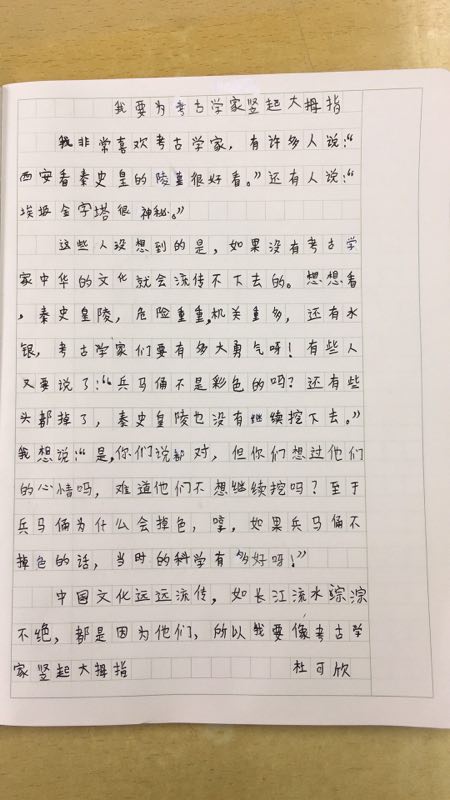 我要为考古学家竖起大拇指
我非常喜欢考古学家，有许多人说：“
西安看秦史皇的陵墓很好看。”还有人说：“
埃圾金字塔很神秘。”
这些人没想到的是，如果没有考古学
家中华的文化就会流传不下去的。想想看
，秦史皇陵，危险重重，机关重多，还有水
银，考古学家们要有多大勇气呀！有些人
又要说了：“兵马俑不是彩色的吗？还有些
头都掉了，秦史皇陵也没有继续挖下去。”
我想说：“是，你们说都对，但你们想过他们
的心情吗，难道他们不想继续挖吗？至于
兵马俑为什么会掉色，哼，如果兵马俑不
掉色的话，当时的科学有多好呀！”
中国文化远远流传，如长江流水综淙
不绝，都是因为他们，所以我要像考古学
家竖起大拇指 杜可欣